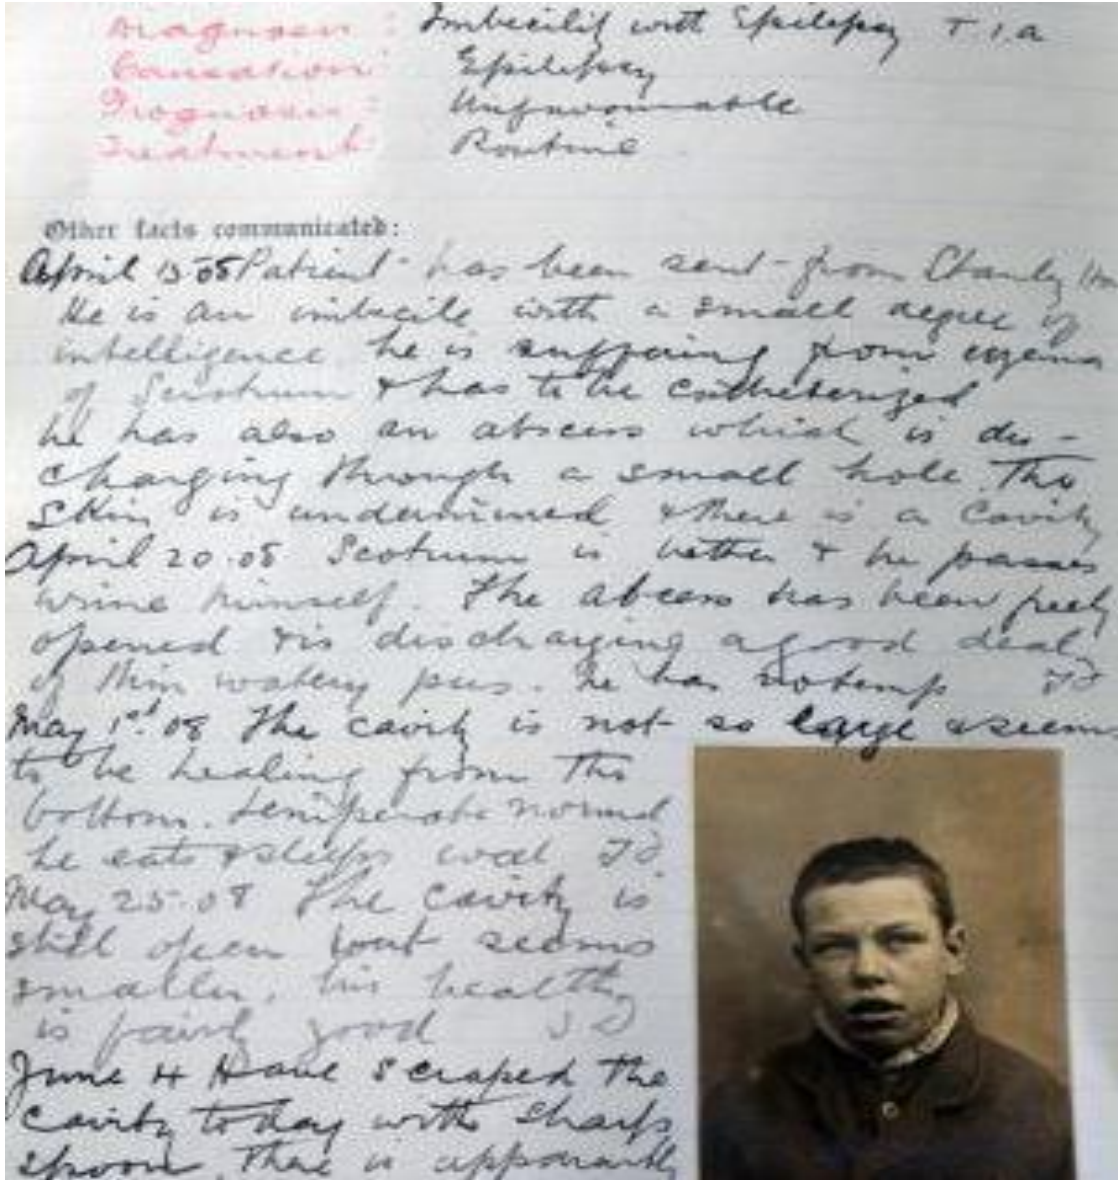 Diagnosis: Imbecility with Epilepsy T.I.a
Causation: Epilepsy
Prognosis: Unfavourable
Treatment Routine
Other facts communicated:
April 15 08 Patient has been sent from
He is an imbecile with a small degree of
intelligence he is suffering from
of & has to be catheterized
he has also an abscess which is dis-
charging through a small hole. The
skin is undermined & there is a cavity
April 20.08 Scotrum is better & he passes
urine himself. The abcess has been freely
opened & is discharging a good deal
of thin watery pus. he has no temp
May 1st 08 The cavity is not so large & seems
to be healing from the
bottom. temperate normal
he eats & sleeps well
May 25.08 The cavity is
still open but seems
smaller, his health
is fairly good
June 4 Have scraped the
cavity today with sharp
spoon, there is apparently